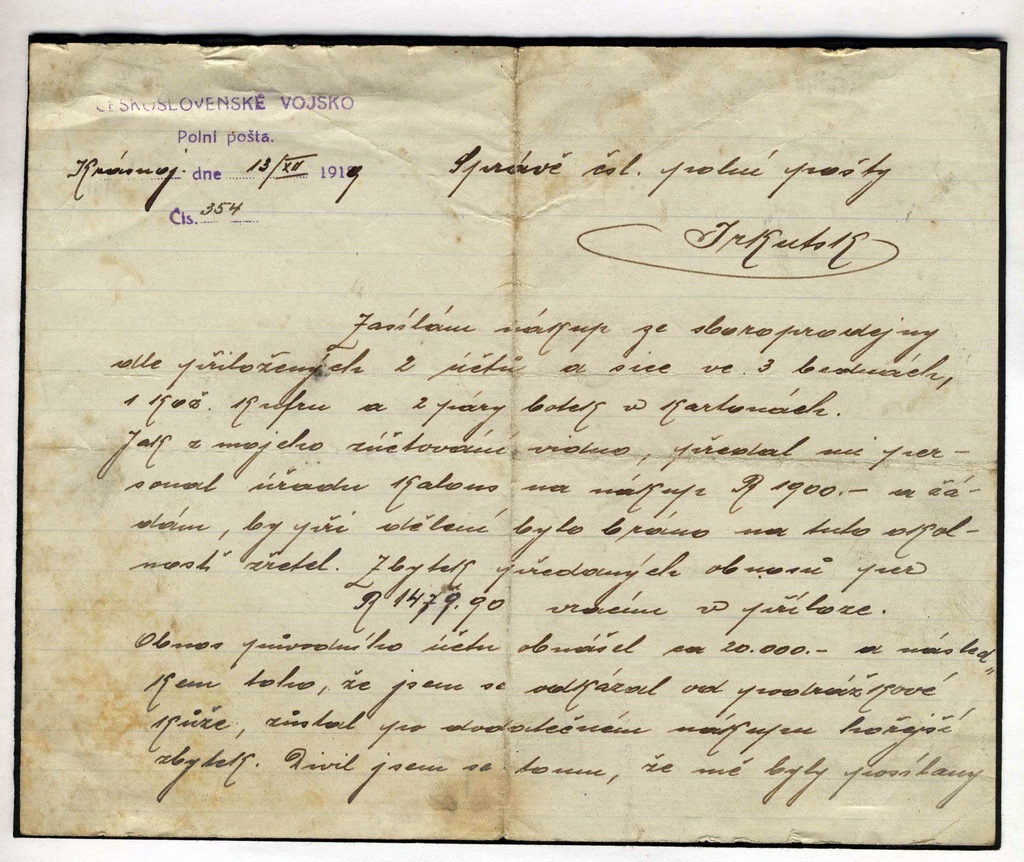 ČESKOSLOVENSKÉ VOJSKO
Polní pošta.
Krásnoj. dne 13/XII 1919
Čís. 354
Správě čsl. polní pošty
Irkutsk
Zasílám nákup ze sboroprodejny
dle přiložených 2 účtů a sice ve 3 bednách,
1 kož. kufru a 2 páry botek v kartonách.
Jak z mojeho zúčtování vidno, předal mi per-
sonal úřadu Kalous na nákup R 1900.- a žá-
dám, by při dělení bylo bráno na tuto okol-
nosti zřetel. Zbytek předaných obnosů per
R 1479.90 vracím v příloze.
Obnos původního účtu obnášel ca 20.000.- a násled"
kem toho, že jsem se odkázal od podrážkové
kůže, zůstal po dodatečném nákupu hořejší
zbytek. Divil jsem se tomu, že mé byly posílany